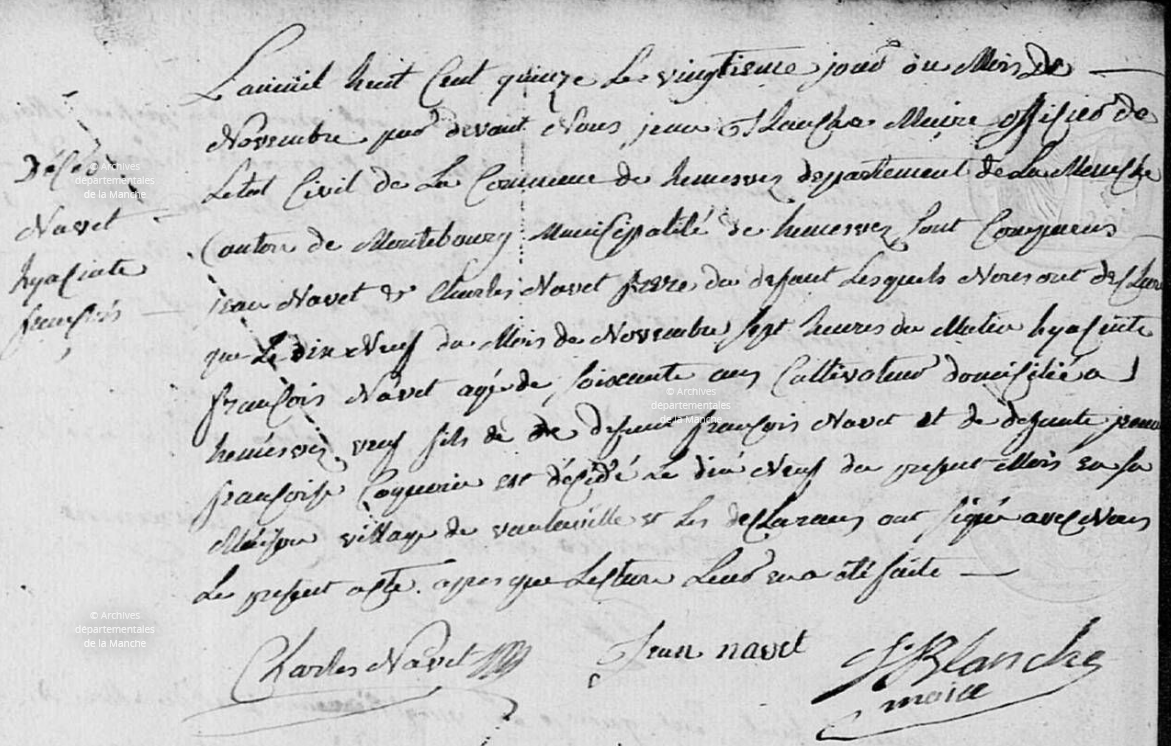 Décés
Navet
hyacinte
françois
L'an mil huit Cent quinze Le vingtieme jour du Mois de
Novembre par devant Nous jean Blanche Maire officier de
Letat Civil de La Commune de hemevez departement de La Manche
Canton de Montebourg Municipalité de hemevez Sont Comparus
jean Navet & Charles Navet frere du defunt Lesquels Nous ont declaré
que Le dix Neuf du Mois de Novembre sept heures du Matin hyacinte
françois Navet agé de soixante ans Cultivateur domicilié a
hemevez veuf fils de de defunt françois Navet et de defunte
françoise est décédé Le dix Neuf du present Mois en sa
Maison village de et Les declarans ont signé avec Nous
Le present acte apres que Lecture Leur en a été faite
Charles Navet
Jean navet
J. Blanche
maire
© Archives
départementales
de la Manche
© Archives
départementales
de la Manche
© Archives
départementales
de la Manche